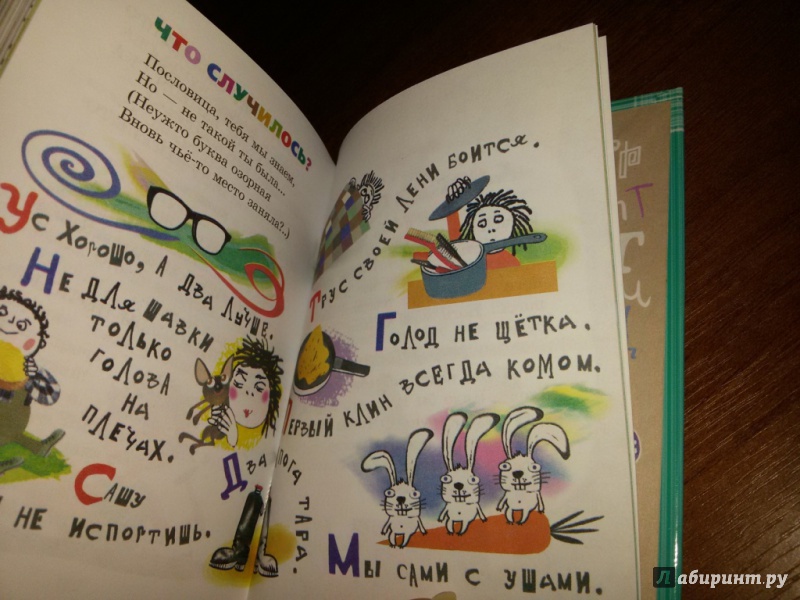 ЧТО СЛУЧИЛОСЬ?
Пословица, тебя мы знаем,
Но — не такой ты была...
(Неужто буква озорная
Вновь чьё-то место заняла?..)
УС ХОРОШО, А ДВА ЛУЧШЕ.
НЕ ДЛЯ ШАВКИ
ТОЛЬКО
ГОЛОВА
НА
ПЛЕЧАХ.
САШУ
НЕ ИСПОРТИШЬ.
ДВА ПОГА ТАРА.
ТРУС СВОЕЙ ЛЕНИ БОИТСЯ.
ГОЛОД НЕ ЩЁТКА.
ПЕРВЫЙ КЛИН ВСЕГДА КОМОМ.
МЫ САМИ С УШАМИ.
Лабиринт.ру